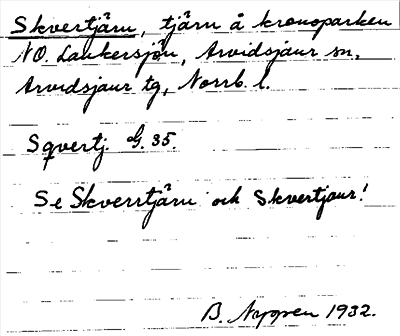 Skvertjärn, tjärn å kronoparken
NO. Laukersjön, Arvidsjaur sn,
Arvidsjaur tg, Norrb. l.
Sqvertj. G. 35.
Se Skverrtjärn och Skvertjaur!
B. Nygren 1932.